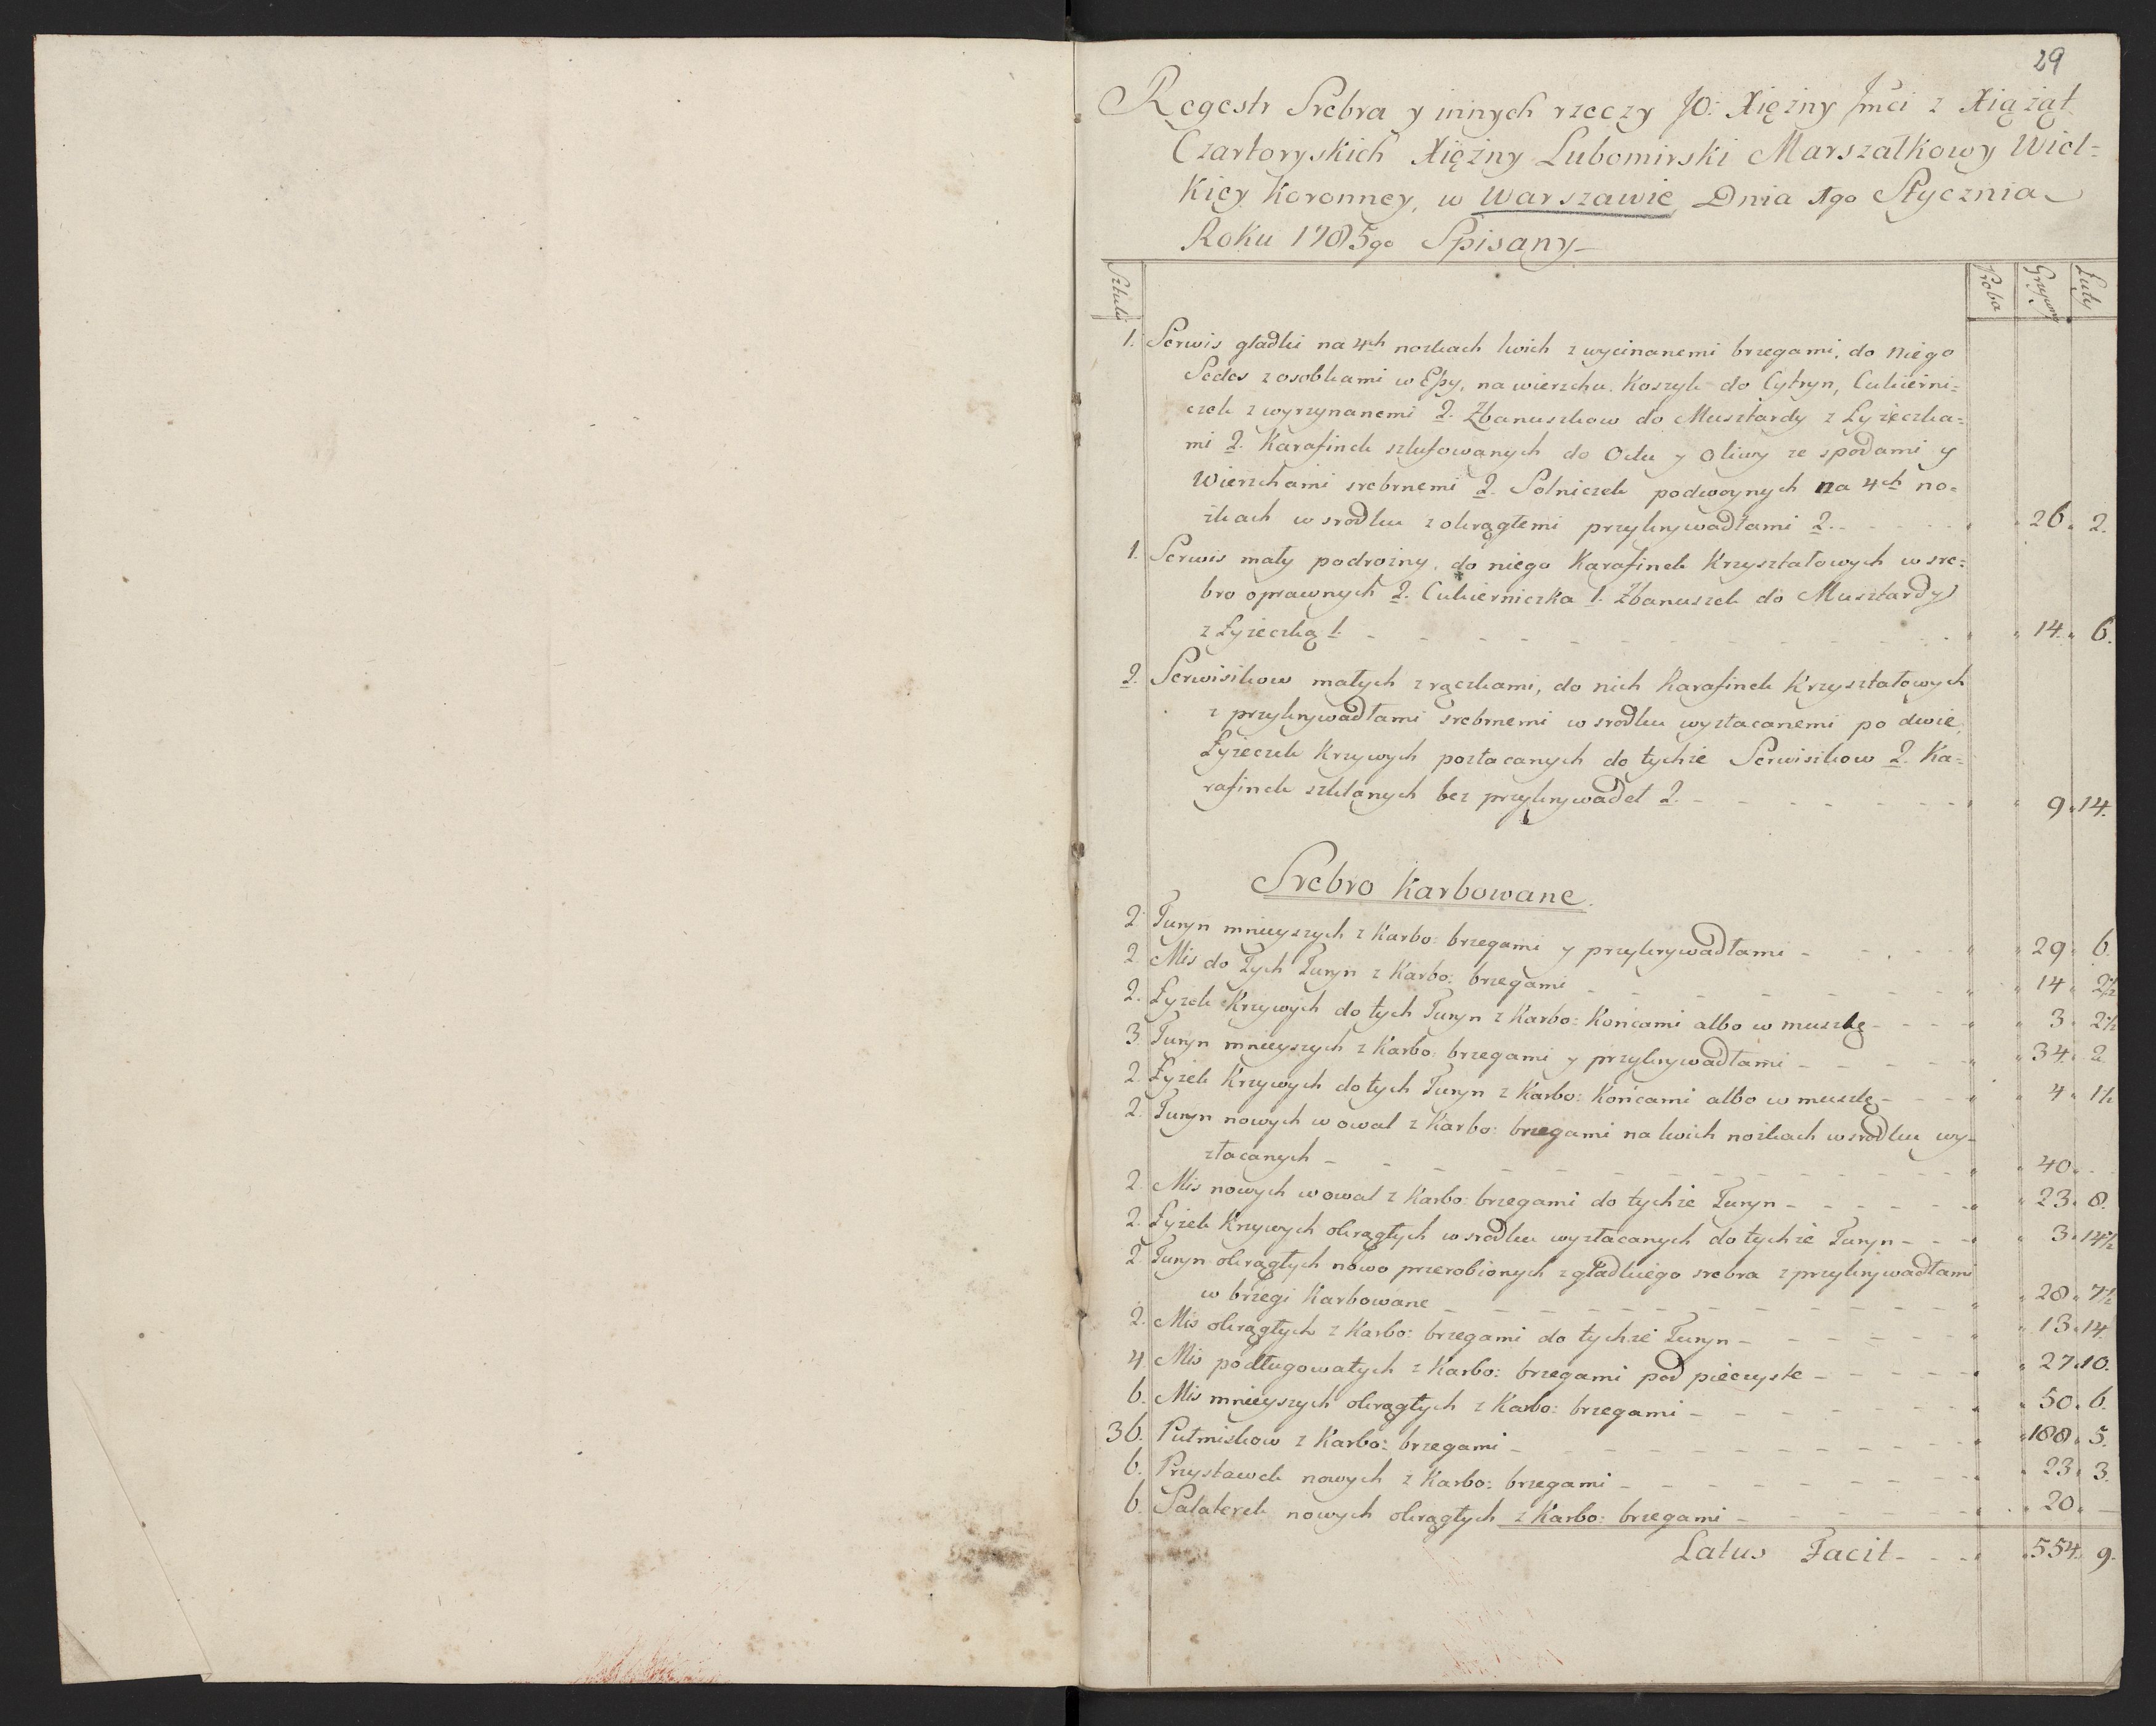 29
Regestr Srebra y innych rzeczy JO: Xiężny Jmci z Xiążąt
Czartoryskich Xiężny Lubomirski Marszałkowy Wiel=
Kiey Koronney, w Warszawie, Dnia 1go Stycznia
Roku 1785go Spisany
Sztuki Proba Grzywny Łuty
1. Serwis gładki na 4ch nożkach lwich z wycinanemi brzegami, do niego
Sedes z osobkami w Eſsy, na wierzchu Koszyk do Cytryn, Cukierni=
czek z wyrzynanemi 2. Zbanuszkow do Musztardy z Łyżeczka=
mi 2. Karafinek szlufowanych do Octu y Oliwy ze spodami y
Wierzchami srebrnemi 2. Solniczek podwoynych na 4ch no=
żkach w srodku z okrągłemi przykrywadłami 2. 26. 2.
1. Serwis mały podrożny, do niego Karafinek Krzyształowych w sre=
bro oprawnych 2. Cukierniczka 1. Zbanuszek do Musztardy
z Łyżeczką 1. 14. 6.
2. Serwisikow małych z rączkami, do nich Karafinek Krzyształowych
z przykrywadłami srebrnemi w srodku wyzłacanemi po dwie,
Łyżeczek Krzywych pozłacanych do tychże Serwisikow 2. Ka=
rafinek szklanych bez przykrywadeł 2. 9. 14.
Srebro Karbowane.
2. Turyn mnieyszych z Karbo: brzegami y przykrywadłami 29. 6.
2. Mis do Tych Turyn z Karbo: brzegami 14. 2½
2. Łyżek Krzywych do tych Turyn z Karbo: Końcami albo w muszlę 3. 2½
3. Turyn mnieyszych z Karbo: brzegami y przykrywadłami 34. 2
2. Łyżek Krzywych do tych Turyn z Karbo: Końcami albo w muszlę 4. 1½
2. Turyn nowych w owal z Karbo: brzegami na lwich nożkach w srodku wy=
złacanych 40.
2. Mis nowych w owal z Karbo: brzegami do tychże Turyn 23. 8.
2. Łyżek Krzywych okrągłych w srodku wyzłacanych do tychże Turyn 3. 14½
2. Turyn okrągłych nowo przerobionych z gładkiego srebra z przykrywadłami
w brzegi Karbowane 28. 7½
2. Mis okrągłych z Karbo: brzegami do tychże Turyn 13. 14.
4. Mis podługowatych z Karbo: brzegami pod pieczyste 27. 10.
6. Mis mnieyszych okrągłych z Karbo: brzegami 50. 6.
36. Pułmiskow z Karbo: brzegami 188. 5.
6. Przystawek nowych z Karbo: brzegami 23. 3.
6. Salaterek nowych okrągłych z Karbo: brzegami 20. —
Latus Facit 554. 9.